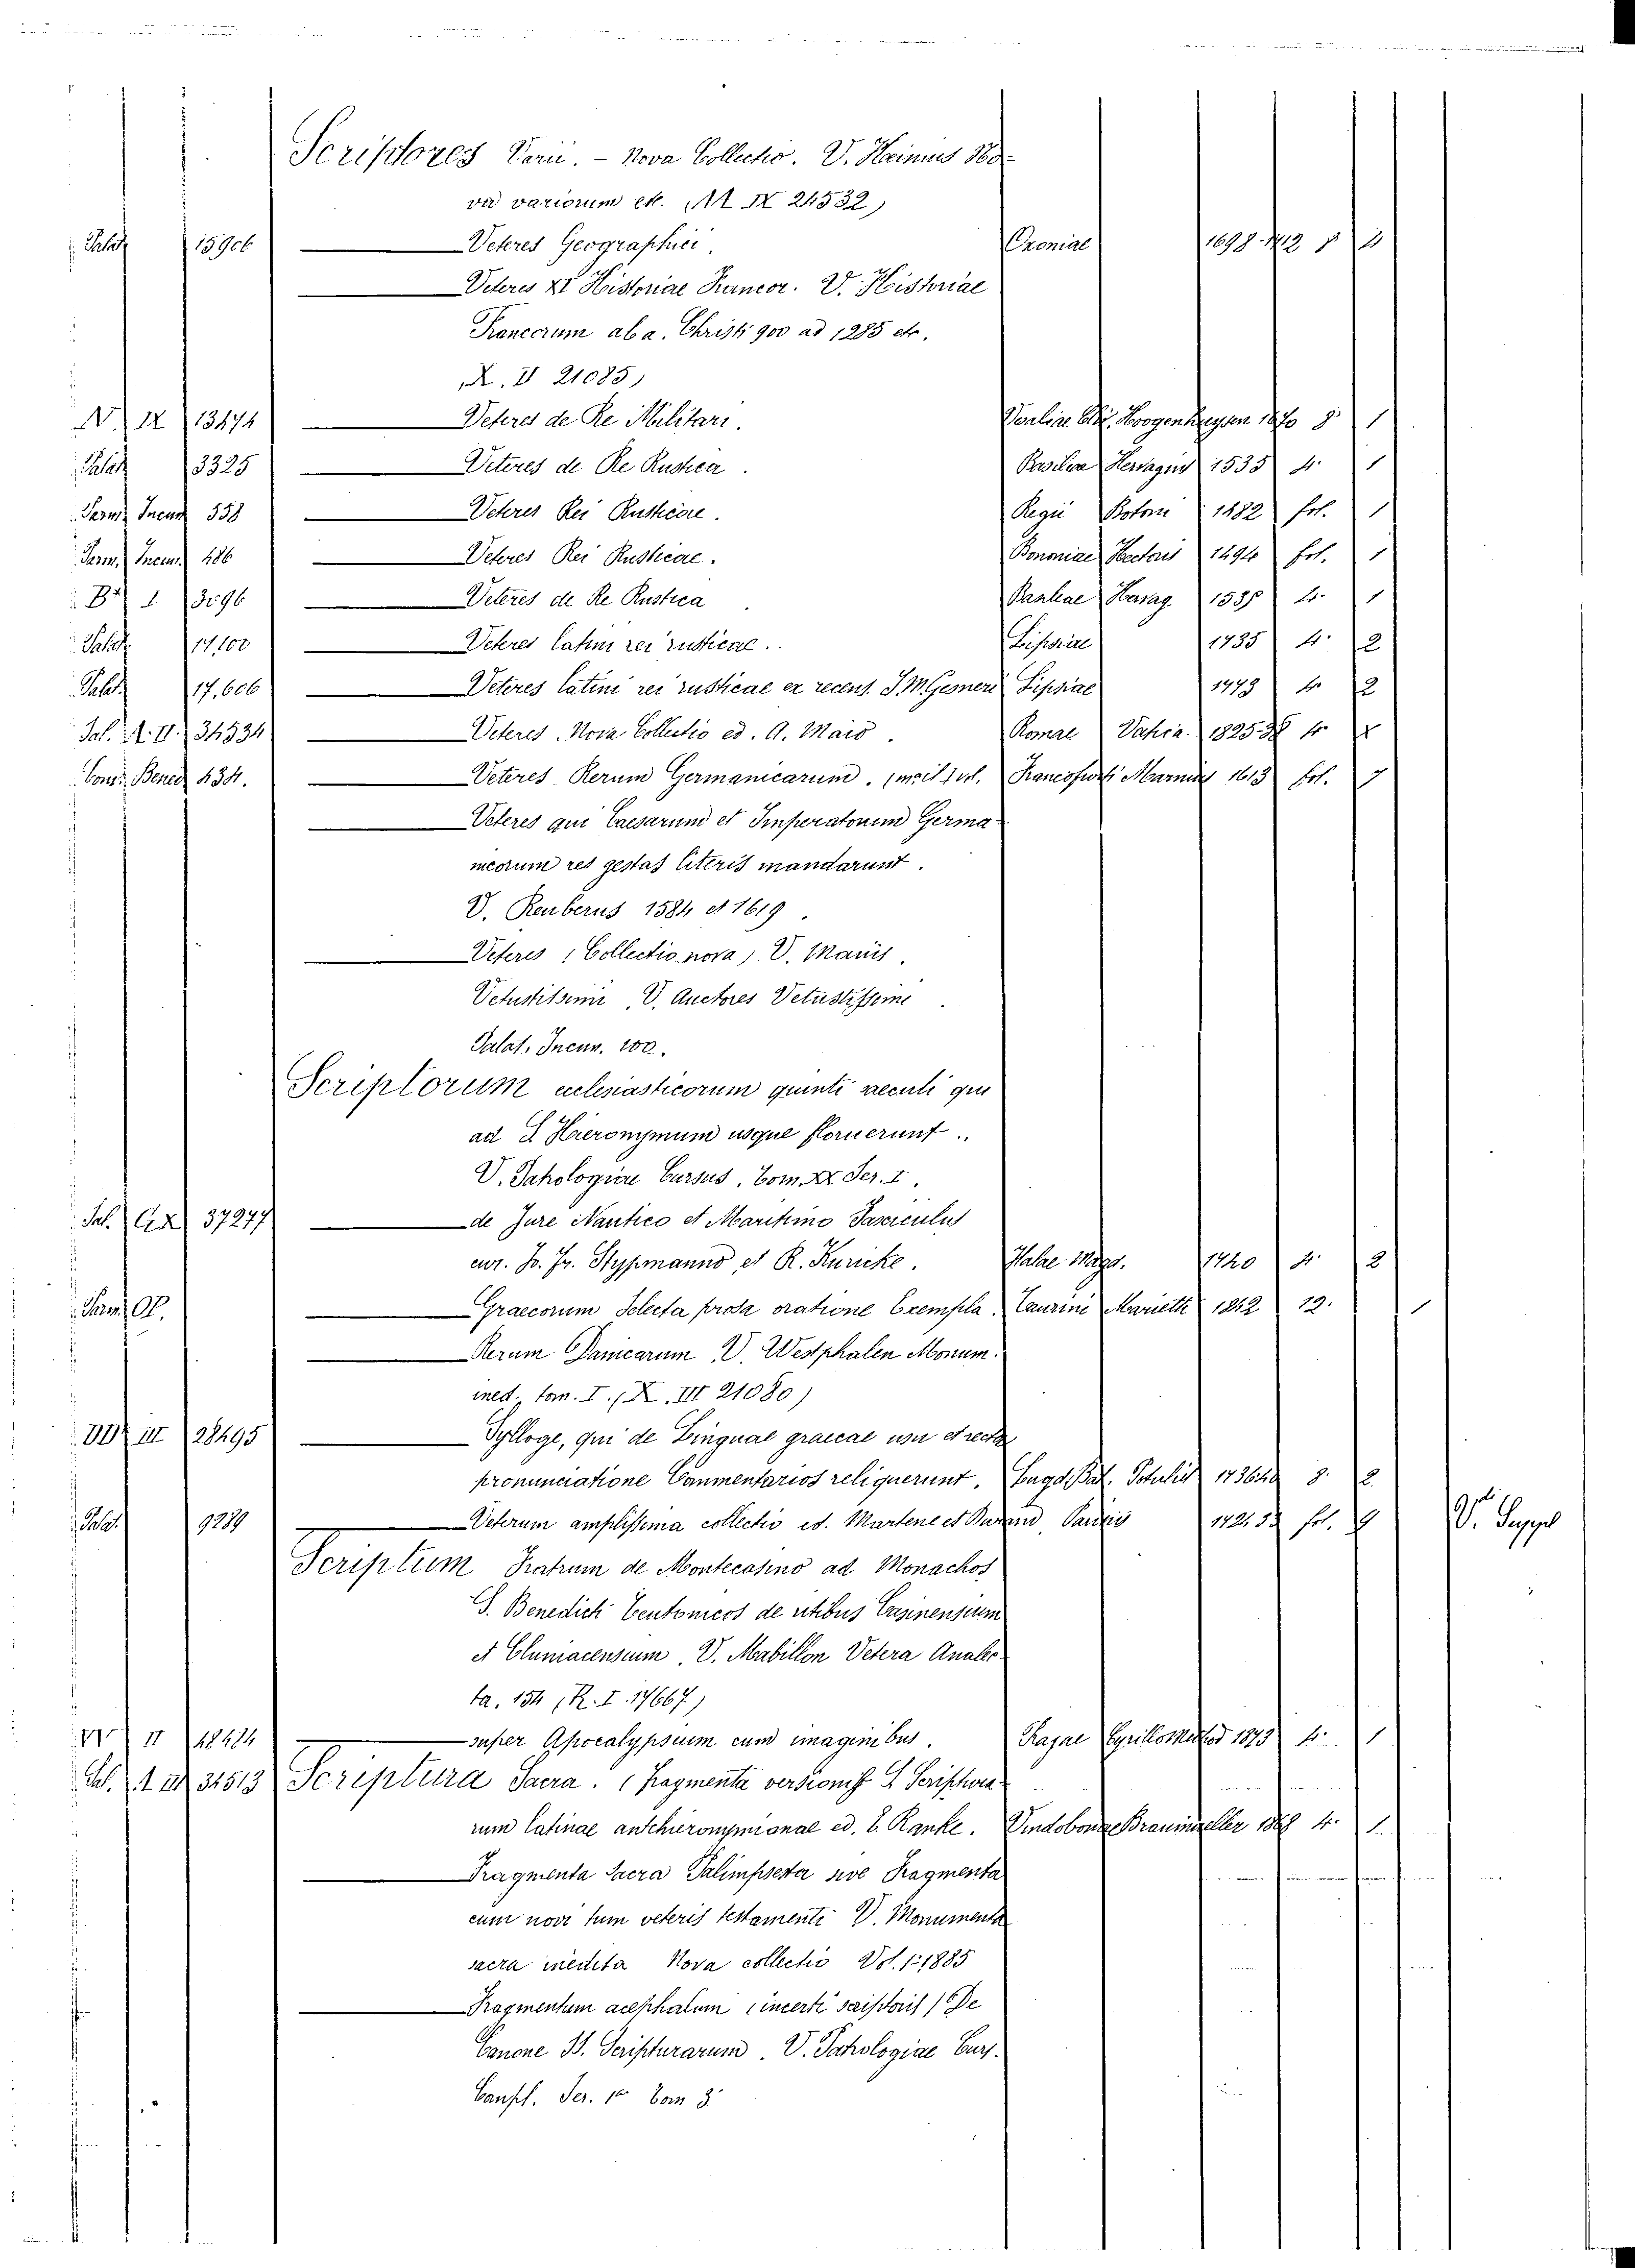 Scriptores Varii. - Nova Collectio. V. Heinius No-
va variorum etc. (M IX 24532)
Palat 15906 Veteres Geographici. Oxoniae 1698-1712 8
Veteres XI Historiae Francor. V. Historiae
Francorum ab a. Christi 900 ad 1285 etc.
(X. II 21085)
N. IX 13474 Veteres de Re Militari. Hoogenhuysen 1670 8. 1
Palat 3325 Veteres de Re Rustica. Basileae Hervagius 1535 4. 1
Parm. Incun 558 Veteres Rei Rusticae. Regii Botoni 1482 fol. 1
Parm. Incun. 486 Veteres Rei Rusticae. Bononiae Hectoris 1494 fol. 1
I 3296 Veteres de Re Rustica Basileae Hervag. 1535 4. 1
Palat. 17,100 Veteres latini rei rusticae. Lipsiae 1735 4. 2
Palat. 17,606 Veteres latini rei rusticae ex recens. J. M. Gesneri Lipsiae 4. 2
Pal. A. II. 34534 Veteres. Nova Collectio ed. A. Maio. Romae Vatica. 1825-38 4.
Cons. Bened 434. Veteres Rerum Germanicarum. Francofurti Marnius 1613 fol.
Veteres qui Caesarum et Imperatorum Germa-
nicorum res gestas literis mandarunt.
V. Reuberus 1584 et 1619.
Veteres (Collectio nova). V. Maius.
Vetustissimi. V. Auctores Vetustissimi
Palat. Incun. 100.
Scriptorum ecclesiasticorum quinti saeculi qui
ad S. Hieronymum usque floruerunt.
V. Patrologiae Cursus. Tom. XX Ser. I.
Pal. 37277 de Jure Nautico et Maritimo Fasciculus
cur. Jo. Fr. Stypmanno et R. Kuricke. Halae Magd. 1720 4. 2
Parm. Graecorum Selecta prosa oratione Exempla. Taurini Marietti 1842 12. 1
Rerum Danicarum V. Westphalen Monum.
ined. tom. I. (X. III 21080)
DD III 28495 Sylloge, qui de Linguae graecae usu et recta
pronunciatione Commentarios reliquerunt. Lugd. Bat. Potuliet 1736-40 8. 2
Palat. 9289 Veterum amplissima collectio ed. Martene et Durand Parisiis fol. 9 V.di Suppl
Scriptum Fratrum de Montecasino ad Monachos
S. Benedicti Teutonicos de ritibus Casinensium
et Cluniacensium. V. Mabillon Vetera Analec-
ta. 154 (R. I. 17667)
II 48424 super Apocalypsium cum imaginibus. Pragae Cyrillo Method 1873 4. 1
Pal. A 31513 Scriptura Sacra. (Fragmenta versionis S. Scriptura-
rum latinae antehieronymianae ed. E. Ranke. Vindobonae Braumueller 1868 4. 1.
Fragmenta Sacra Palimpsesta sive Fragmenta
cum novi tum veteris testamenti V. Monumenta
sacra inedita Nova collectio Vol. 1. 1885
Fragmentum acephalum (incerti scriptoris) De
Canone SS. Scripturarum. V. Patrologiae Curs.
Compl. Ser. 1a Tom 3.